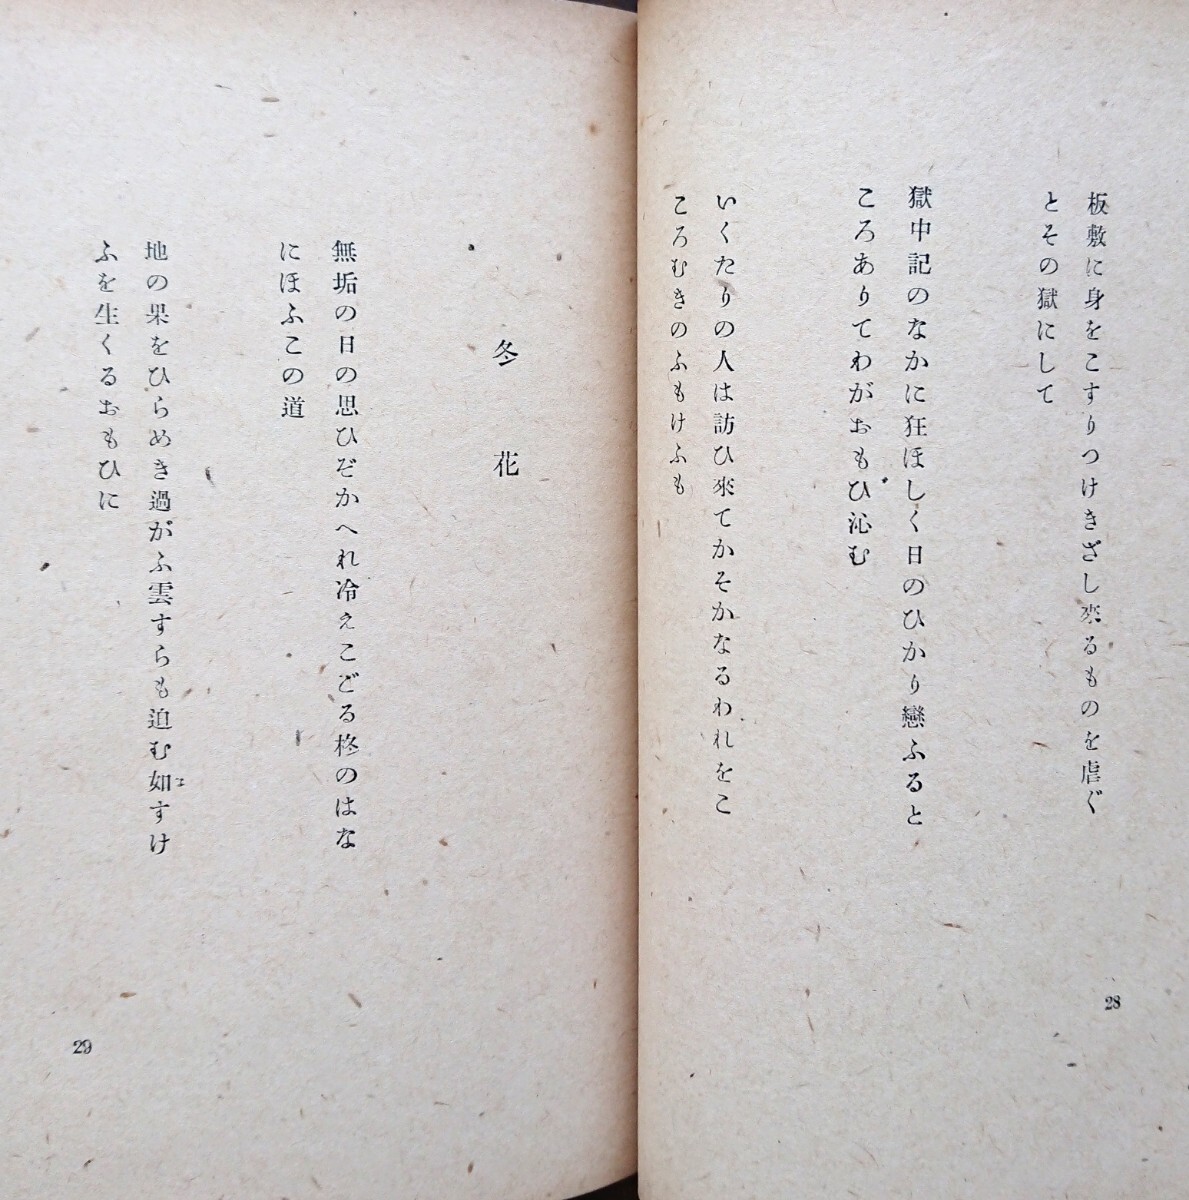 板敷に身をこすりつけきざし來るものを虐ぐ
とその獄にして
獄中記のなかに狂ほしく日のひかり戀ふると
ころありてわがおもひ沁む
いくたりの人は訪ひ來てかそかなるわれをこ
ころむきのふもけふも
28
冬花
無垢の日の思ひぞかへれ冷えこごる柊のはな
にほふこの道
地の果をひらめき過がふ雲すらも迫む如すけ
ふを生くるおもひに
29